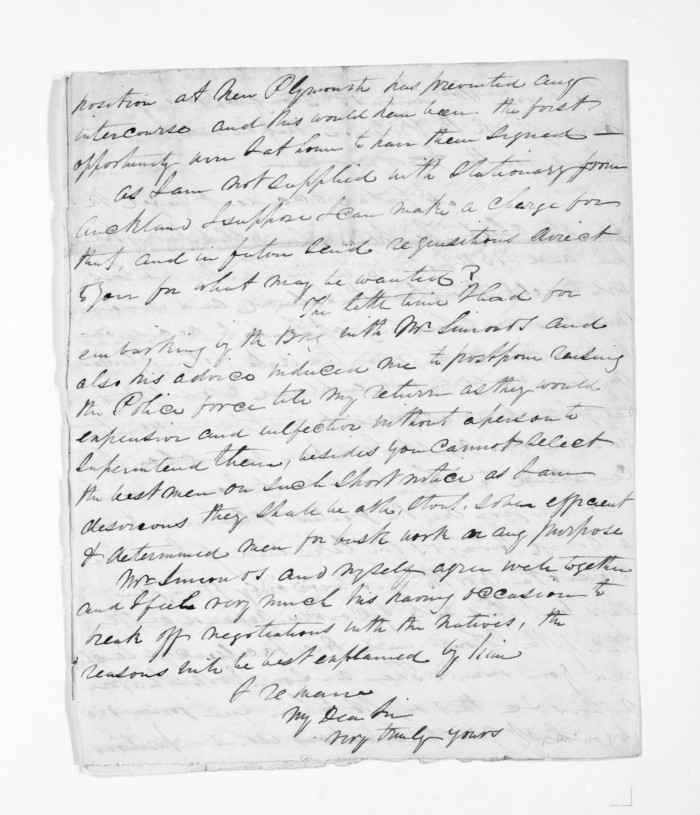 position at New Plymouth has prevented any
intercourse and this would have been the first
opportunity were I at home to have them signed —
as I am not supplied with Stationary from
Auckland I suppose I can make a charge for
that, and in future send requisitions direct
to you for what may be wanted?
The little time I had for
embarking by the Brig with Mr Simonds and
also his advice induced me to postpone raising
the Police force till my return as they would
expensive and inefective without a person to
Superintend them, besides you cannot select
the best men on such short notice as I am
desireous they shall be able, stout, sober efficient
& determined men for work or any purpose
Mr Simonds and myself agree well together
and I feel very much his having occasion to
break off negotiations with the natives, the
reasons will be best explained by him
I remain
My Dear Sir
very truly yours